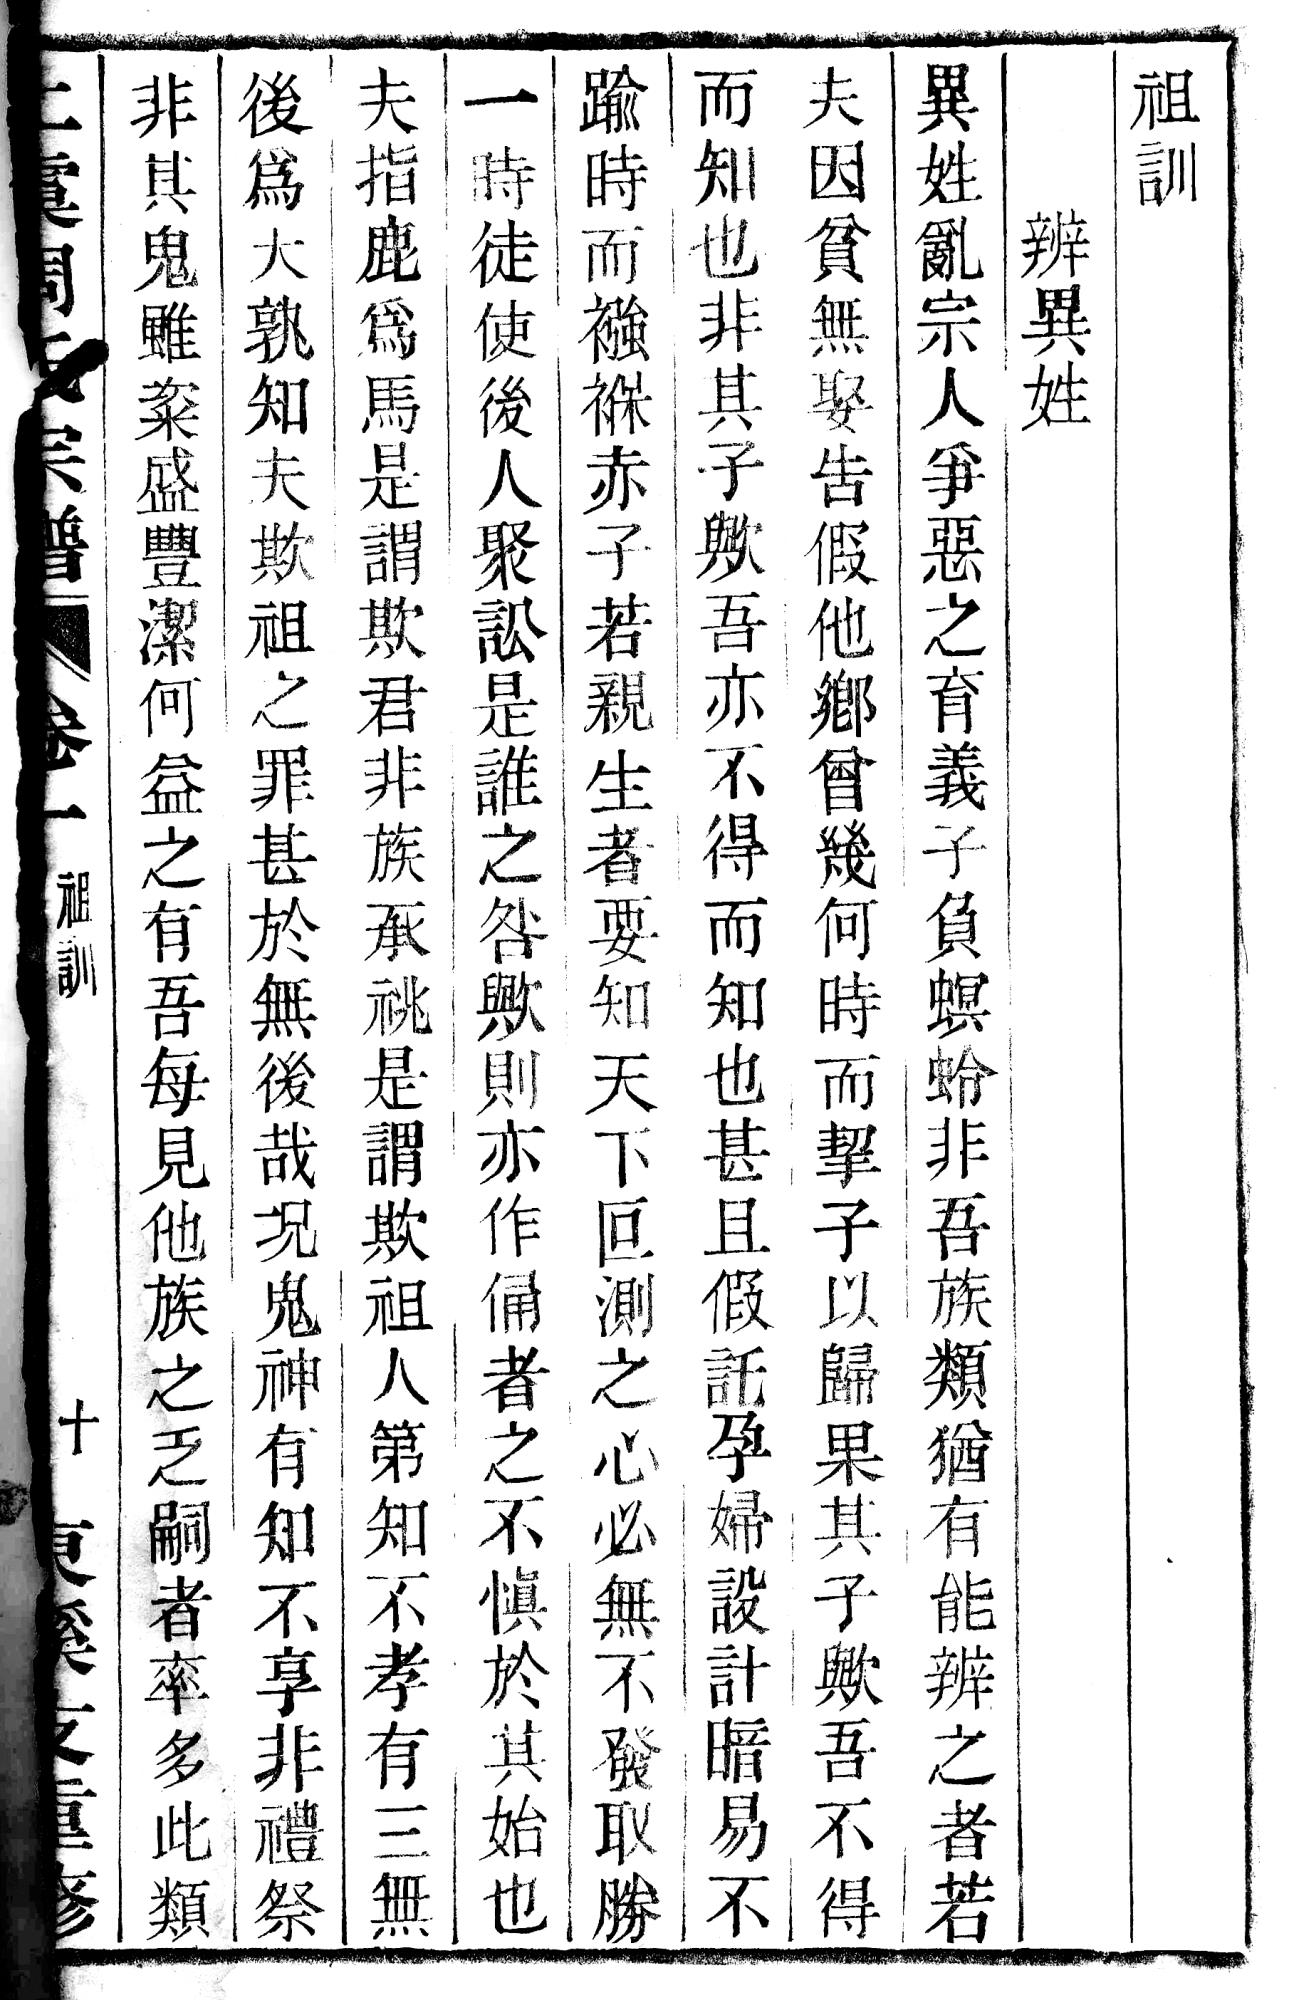 祖訓
辨異姓
異姓亂宗人爭惡之育義子負螟蛉非吾族類猶有能辨之者若
夫因貧無娶告假他鄉曾幾何時而挈子以歸果其子歟吾不得
而知也非其子歟吾亦不得而知也甚且假託孕婦設計暗易不
踰時而襁褓赤子若親生者要知天下叵測之心必無不發取勝
一時徒使後人聚訟是誰之咎歟則亦作俑者之不慎於其始也
夫指鹿爲馬是謂欺君非族承祧是謂欺祖人第知不孝有三無
後爲大孰知夫欺祖之罪甚於無後哉况鬼神有知不享非禮祭
非其鬼雖粢盛豐潔何益之有吾每見他族之乏嗣者率多此類
上虞周氏宗譜 卷一 祖訓 十 東溪支重修